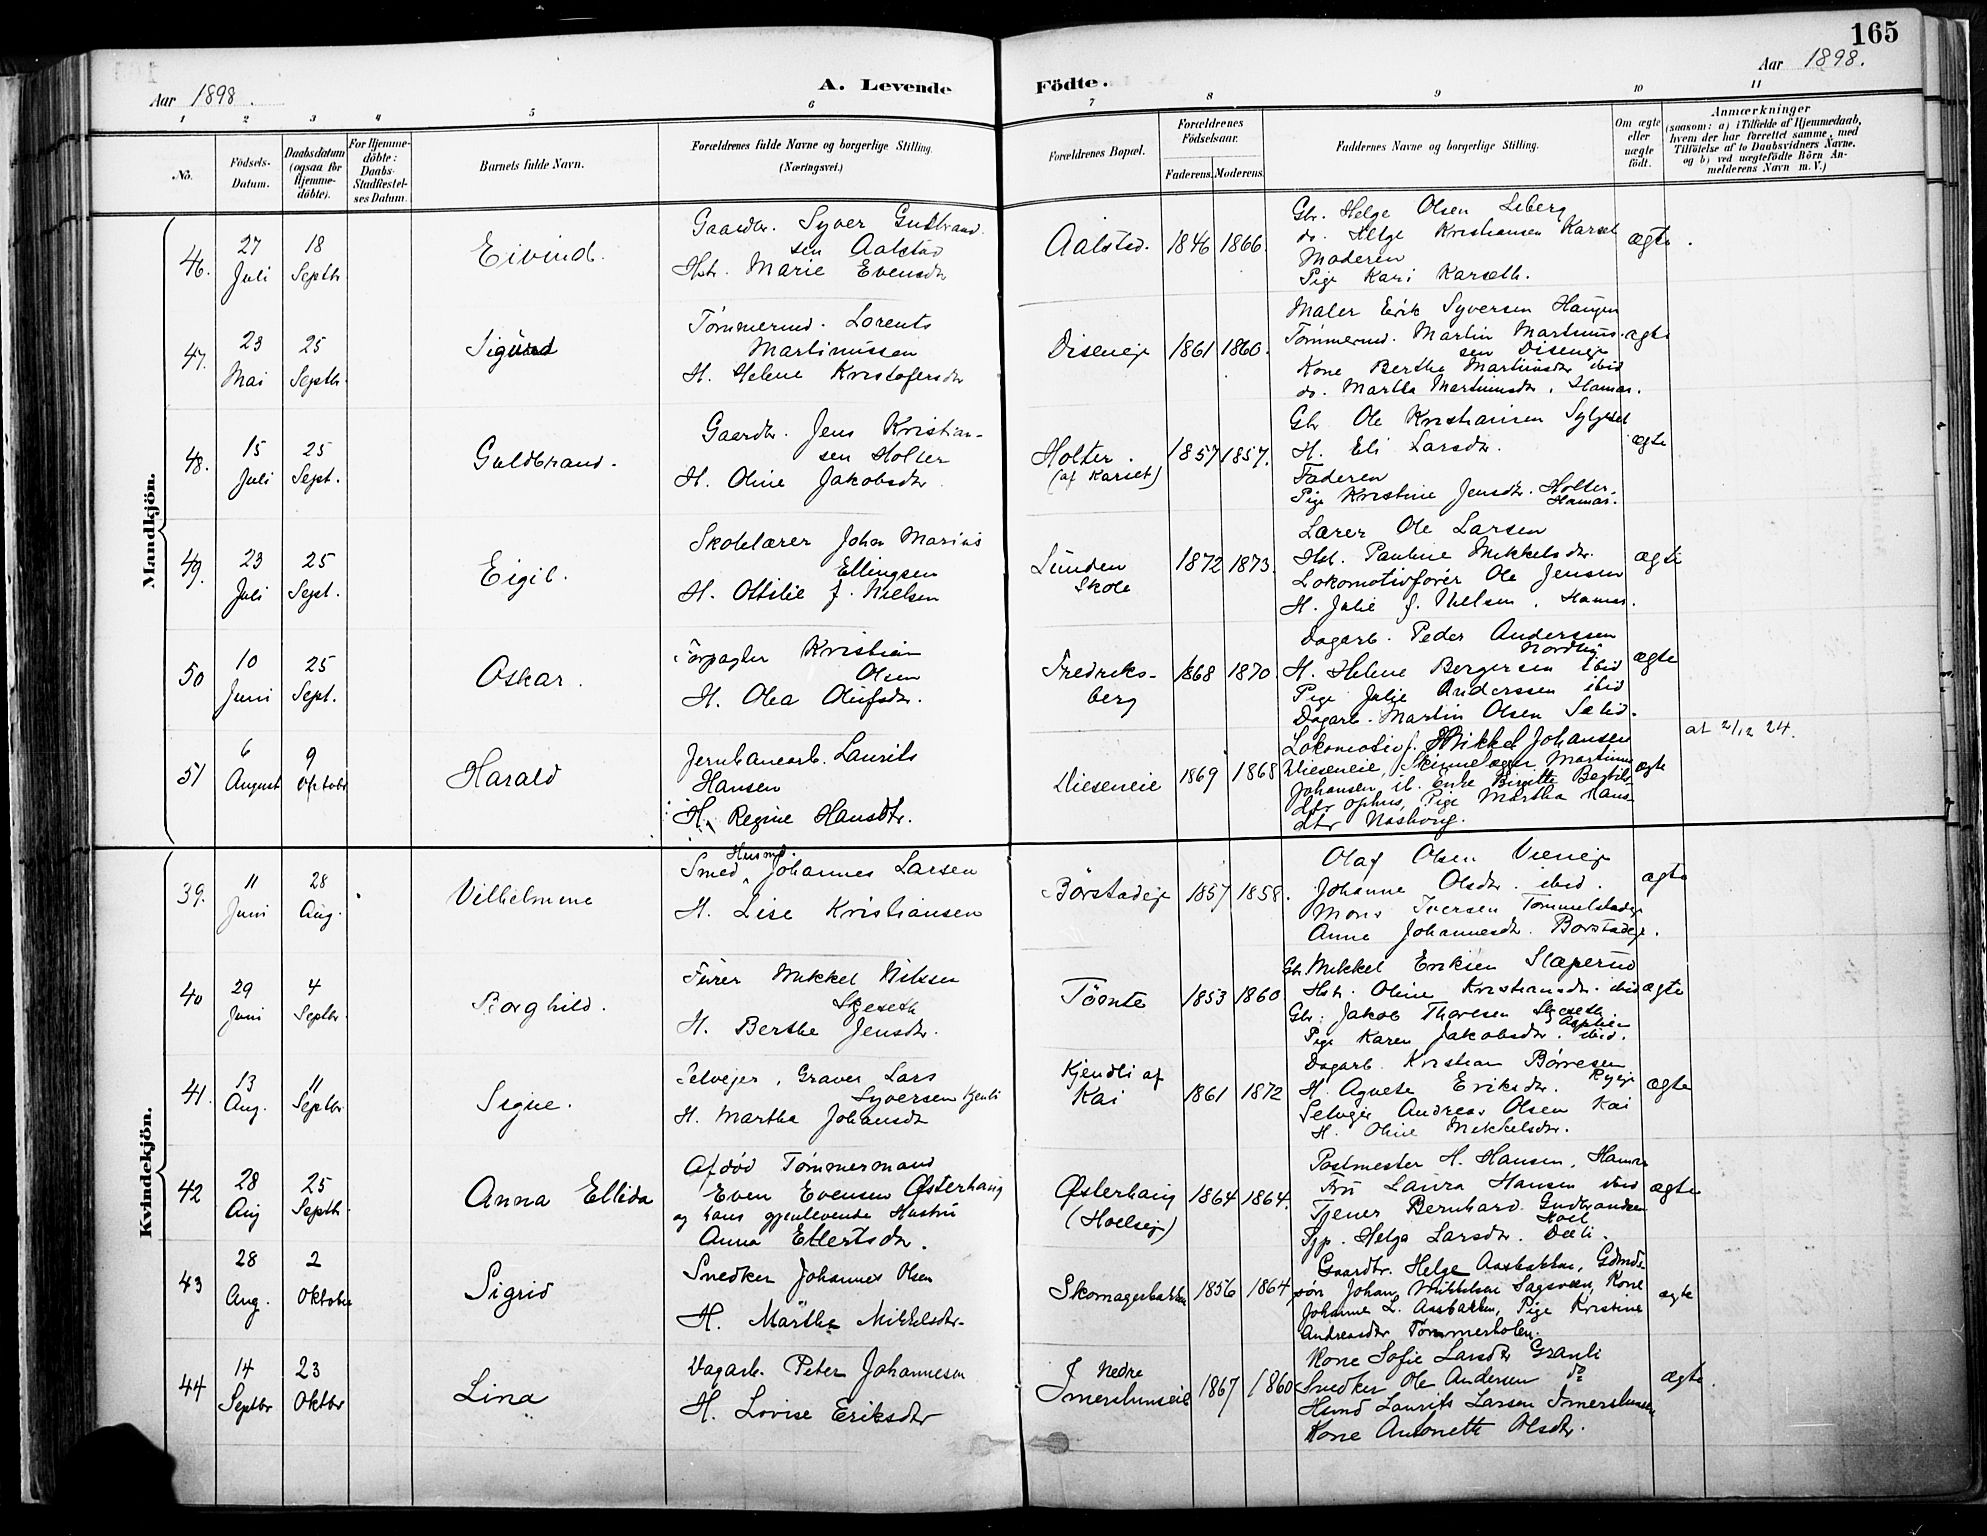 165
Aar 1898.
A. Levende
Födte.
Aar 1898.
1 2 3 4 5 6 7 8 9 10 11
No.
Födsels-Datum.
Daabsdatum (ogsaa for Hjemme-döbte).
For Hjemme-döbte: Daabs-Stadfæstel-ses Datum.
Barnets fulde Navn.
Forældrenes fulde Navne og borgerlige Stilling.
(Næringsvei.)
Forældrenes Bopæl.
Forældrenes Födselsaar.
Faderens. Moderens.
Faddernes Navne og borgerlige Stilling.
Om ægte eller uægte födt.
Anmærkninger
(saasom: a) i Tilfælde af Hjemmedaab,
hvem der har forrettet samme, med
Tilföielse af to Daabsvidners Navne.
og b) ved uægtefödte Börn An-
melderens Navn m. V.)
Mandkjön.
46. 27 Juli 18 Septbr Eivind.
Gaardbr. Syver Gulbrand-
sen Aalstad
Hst. Marie Evensdtr
Aalstad. 1846 1866.
Gbr. Helge Olsen Liberg
do. Helge Kristiansen Karset
Moderen
Pige Kari Karseth.
ægte.
47. 23 Mai 25 Septbr. Sigurd
Tømmermd. Lorents
Martinussen
H. Helene Kristofersdtr
Diseneje 1861 1860.
Maler Erik Syversen Haugen
Tømmermd. Martin Martinus-
sen Diseneje
Kone Berthe Martinusdtr ibid
do. Martha Martinusdtr. Hamar.
ægte
48. 15 Juli 25 Sept. Guldbrand.
Gaardbr. Jens Kristian-
sen Holter
H. Oline Jakobsdtr.
Holter.
(af Karset)
1857 1857.
Gbr Ole Kristiansen
H. Eli Larsdtr.
Faderen
Pige Kristine Jensdtr. Holter.
Hamar.
ægte
49. 23 Juli 25 Sept. Eigil.
Skolelærer Johan Marius
Ellingsen
H. Ottilie f. Nielsen
Lunden
Skole
1872 1873.
Lærer Ole Larsen
Hst. Pauline Mikkelsdtr.
Lokomotivfører Ole Jensen
H. Julie f. Nielsen. Hamar.
ægte
50 10 Juni 25 Sept. Oskar.
Forpagter Kristian
Olsen
H. Olea Olufsdtr.
Fredriks-
berg
1868 1870
Dagarb. Peder Anderssen
Nordli
H. Helene Bergersen ibid
Pige Julie Anderssen ibid
Dagarb. Martin Olsen Sælid.
ægte
51 6 August 9 Oktobr Harald
Jernbanearb. Laurits
Hansen
H. Regine Hansdtr.
Dieseneie 1869 1868
Lokomotivf. Mikkel Johansen
Dieseneie, Martinus
Johansen ib. Enke Birgitte Bertels-
dtr Ophus, Pige Martha Hans-
dtr Nashoug.
ægte
at 2/12 24.
Kvindekjön.
39. 11 Juni 28 Aug. Vilhelmine
Husmd.
Smed, Johannes Larsen
H. Lise Kristiansen
Børstadeje 1857 1858.
Olaf Olsen Vieneje
Johanne Olsdtr. ibid.
Mons Iversen Tommelstadeje
Anne Johannesdtr. Børstadeje.
ægte
40 29 Juni 4 Septbr. Borghild.
Furer Mikkel Nilsen
Skjeseth
H. Berthe Jensdtr.
Tøinte 1853 1860
Gbr. Mikkel Eriksen Slaperud
Hst. Oline Kristiansdtr. ibid
Gbr. Jakob Thoresen Skjeseth
Pige Karen Jakobsdtr. ibid.
ægte
41. 13 Aug. 11 Septbr. Signe.
Selvejer, Graver Lars
Syversen Kjenli
H. Martha Johansdtr
Kjendli af
Kai
1861 1872
Dagarb. Kristian Børresen
H. Agnete Eriksdtr.
Selvejer Andreas Olsen Kai
H. Oline Mikkelsdtr.
ægte
42 28 Aug 25 Septbr. Anna Ellida
Afdød Tømmermand
Even Evensen Østerhaug
og hans gjenlevende Hustru
Anna Ellertsdtr.
Østerhaug
(Hoelseje)
1864 1864.
Postmester H. Hansen, Hamar
Fru Laura Hansen ibid
Tjener Bernhard Gudbrandsen
Hoel
Helga Larsdtr. Dæli.
ægte
43 28 Aug. 2 Oktober Sigrid
Snedker Johannes Olsen
H. Märthe Mikkelsdtr.
Skomagerbakken 1856 1864
Gaardbr. Helge Aasbakken, Gdmds-
søn Johan Mikkelsen Sagsveen, Kone
Johanne L. Aasbakken, Pige Kristine
Andreasdtr Tømmerholen.
ægte
44 14 Septbr 23 Oktbr Lina
Dagarb. Peter Johannesen
H. Lovise Eriksdtr
Nedre
Imerslunseie
1867 1860
Kone Sofie Larsdtr Granli
Snedker Ole Andersen do
Hsmd Laurits Larsen Imerslunseie
Kone Antonette Olsdtr.
ægte.